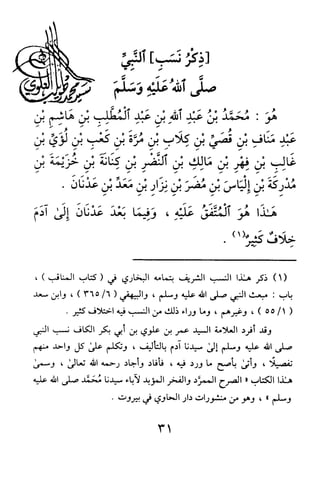 [ذِكْرُ نَسَبِ] ٱلنَّبِيِّ
صَلَّى ٱللهُ عَلَيْهِ وَسَلَّمَ
هُوَ : مُحَمَّدُ بْنُ عَبْدِ ٱللهِ بْنِ عَبْدِ ٱلْمُطَّلِبِ بْنِ هَاشِمِ بْنِ
عَبْدِ مَنَافِ بْنِ قُصَيِّ بْنِ كِلَابِ بْنِ مُرَّةَ بْنِ كَعْبِ بْنِ لُؤَيِّ بْنِ
غَالِبِ بْنِ فِهْرِ بْنِ مَالِكِ بْنِ ٱلنَّضْرِ بْنِ كِنَانَةَ بْنِ خُزَيْمَةَ بْنِ
مُدْرِكَةَ بْنِ إِلْيَاسَ بْنِ مُضَرَ بْنِ نِزَارِ بْنِ مَعَدِّ بْنِ عَدْنَانَ .
هَـٰذَا هُوَ ٱلْمُتَّفَقُ عَلَيْهِ ، وَفِيمَا بَعْدَ عَدْنَانَ إِلَىٰ آدَمَ
خِلَافٌ كَثِيرٌ(١) .
(١) ذكر هـٰذا النسب الشريف بتمامه البخاري في ( كتاب المناقب ) ،
باب : مبعث النبي صلى الله عليه وسلم ، والبيهقي ( ٣٦٥/٦ ) ، وابن سعد
( ٥٥/١ ) ، وغيرهم ، وما وراء ذلك من النسب فيه اختلاف كثير .
وقد أفرد العلامة السيد عمر بن علوي بن أبي بكر الكاف نسب النبي
صلى الله عليه وسلم إلى سيدنا آدم بالتأليف ، وتكلم علىٰ كل واحد منهم
تفصيلاً ، وأتىٰ بأصح ما ورد فيه ، فأفاد وأجاد رحمه الله تعالىٰ ، وسمىٰ
هـٰذا الكتاب « الصرح الممرَّد والفخر المؤبد لآباء سيدنا مُحَمَّد صلى الله عليه
وسلم » ، وهو من منشورات دار الحاوي في بيروت .
٣١